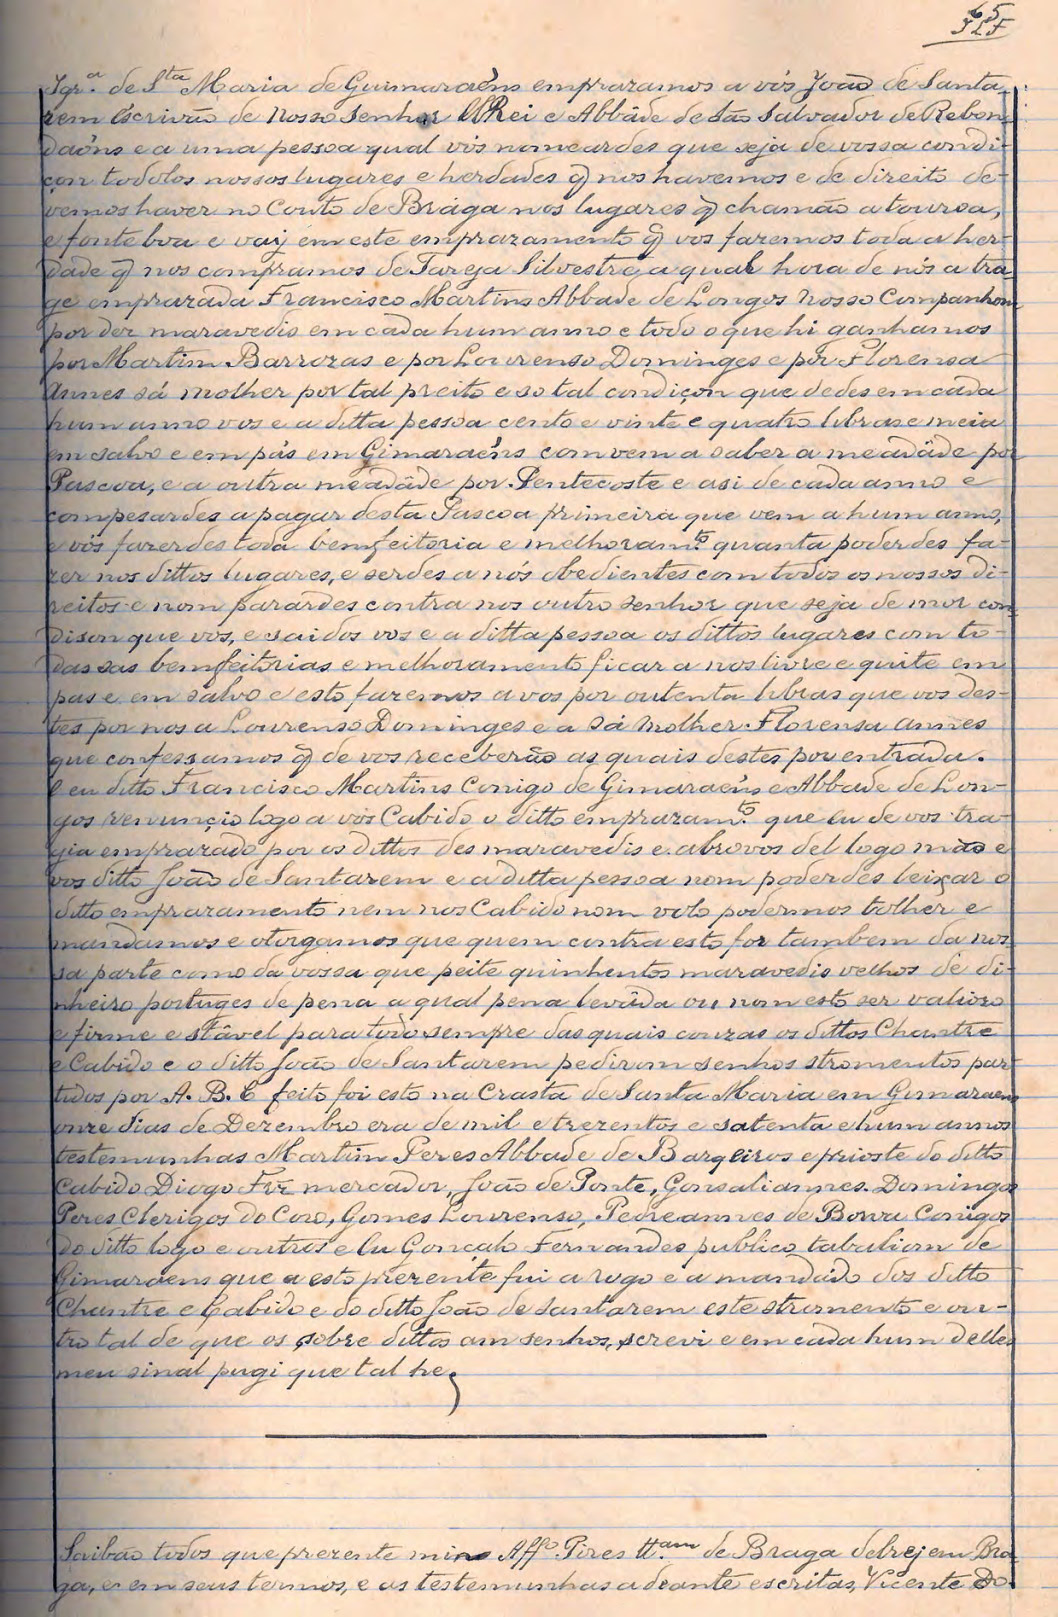 65
Igr.ª de S.ta Maria de Guimaraẽns emprazamos a vós João de Santa-
rem escrivão de nosso senhor ElRei e Abbâde de São Salvador de Rebon-
daõns e a uma pessoa qual vós nomeardes que seja de vossa condi-
çon todolos nossos lugares e herdades q̃ nos havemos e de direito de-
vemos haver no Couto de Braga nos lugares q̃ chamão a touroa,
e fonte boa e vaij em este emprazamento q̃ vos fazemos toda a her-
dade q̃ nos compramos de Tareja Silvestre, a qual hora de nós a tra-
ge emprazada Francisco Martins Abbade de Longos nosso Companhom
por dez maravedis em cada hum anno e todo o que hi ganhamos
por Martim Barrozas e por Lourenso Dominges e por Florensa
Annes sá molher por tal preito e so tal condiçon que dedes em cada
hum anno vos e a ditta pessoa cento e vinte e quatro libras e meia
em salvo e em pás em Gimaraẽns convem a saber a meadâde por
Pascoa, e a outra meadâde por Pentecoste e asi de cada anno e
compesardes a pagar desta Pascoa primeira que vem a hum anno,
e vós fazerdes toda bemfeitoria e melhoram.to quanta poderdes fa-
zer nos dittos lugares, e serdes a nós obedientes com todos os nossos di-
reitos e nom parardes contra nos outro senhor que seja de mor con-
dison que vós, e saidos vos e a ditta pessoa os dittos lugares com to-
das sas bemfeitorias e melhoramento ficar a nos livre e quite em
pas e em salvo e esto fazemos a vos por outenta libras que vos des-
tes por nos a Lourenso Dominges e a sá molher Florensa Annes
que confessamos q̃ de vos receberão as quais destes por entrada.
E eu ditto Francisco Martins Conigo de Gimaraẽns e Abbade de Lon-
gos renunçio logo a vós Cabido o ditto emprazam.to que eu de vos tra-
gia emprazado por os dittos des maravedis e abrovos del logo mão e
vos ditto João de Santarem e a ditta pessoa nom poderdes leixar o
ditto emprazamento nem nos Cabido nom volo podermos tolher e
mandamos e otorgamos que quem contra esto for tambem da nos-
sa parte como da vossa que peite quinhentos maravedis velhos de di-
nheiro portuges de pena a qual pena levâda ou nom esto ser valioso
e firme e stâvel para todo sempre das quais couzas os dittos Chantre
e Cabido e o ditto João de Santarem pedirom senhos stromentos par-
tidos por A. B. C feito foi esto na Crasta de Santa Maria em Gimaraens
onze dias de Dezembro era de mil e trezentos e satenta e hum annos
testemunhas Martim Peres Abbade de Barqeiros e prioste do ditto
Cabido Diogo Frz mercador, João de Ponte, Gonsalianes. Domingos
Peres Clerigos do Coro, Gomes Lourenso, Pedreannes de Bowra Conigos
do ditto logo e outros e Eu Gonçalo Fernandes publico tabaliom de
Gimaraens que a esto prezente fui a rogo e a mandádo dos ditto
Chantre e Cabido e do ditto João de Santarem este stromento e ou-
tro tal de que os sobre dittos am senhos, screvi e em cada hum delles
meu sinal pugi que tal he,
Saibão todos que prezente mim Aff.º Pires tt.am de Braga delrej em Bra-
ga, e em seus termos, e as testemunhas adeante escritas, Vicente Do-